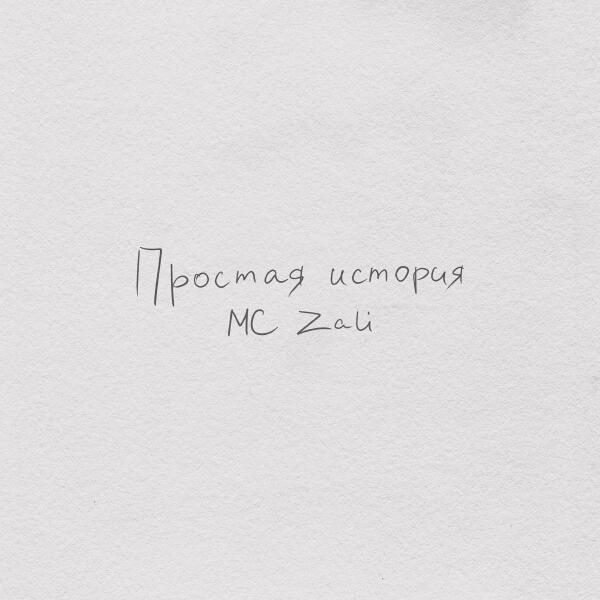 Простая история
MC Zali